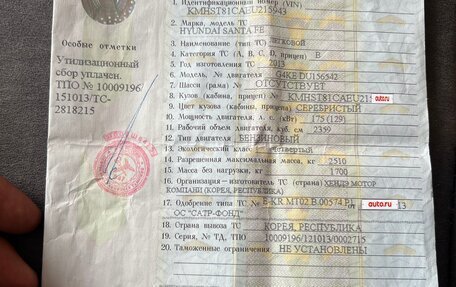 Особые отметки
Утилизационный
сбор уплачен.
ТПО № 10009196/
151013/ТС-
2818215
1. Идентификационный номер (VIN)
KMHST81CAEU215943
2. Марка, модель ТС
HYUNDAI SANTA FE
3. Наименование (тип ТС) Легковой
4. Категория ТС (А, В, С, D, прицеп) B
5. Год изготовления ТС 2013
6. Модель, № двигателя G4KE DU156542
7. Шасси (рама) № ОТСУТСТВУЕТ
8. Кузов (кабина, прицеп) № KMHST81CAEU215
auto.ru
9. Цвет кузова (кабины, прицепа) СЕРЕБРИСТЫЙ
10. Мощность двигателя, л. с. (кВт) 175 (129)
11. Рабочий объем двигателя, куб. см 2359
12. Тип двигателя БЕНЗИНОВЫЙ
13. Экологический класс четвертый
14. Разрешенная максимальная масса, кг 2510
15. Масса без нагрузки, кг 1700
16. Организация—изготовитель ТС (страна) ХЕНДЭ МОТОР
КОМПАНИ (КОРЕЯ, РЕСПУБЛИКА)
17. Одобрение типа ТС № E-KR.MT02.B.00574.P1 от auto.ru 13
ОС "САТР-ФОНД"
18. Страна вывоза ТС КОРЕЯ, РЕСПУБЛИКА
19. Серия, № ТД, ТПО 10009196/121013/0002715
20. Таможенные ограничения НЕ УСТАНОВЛЕНЫ